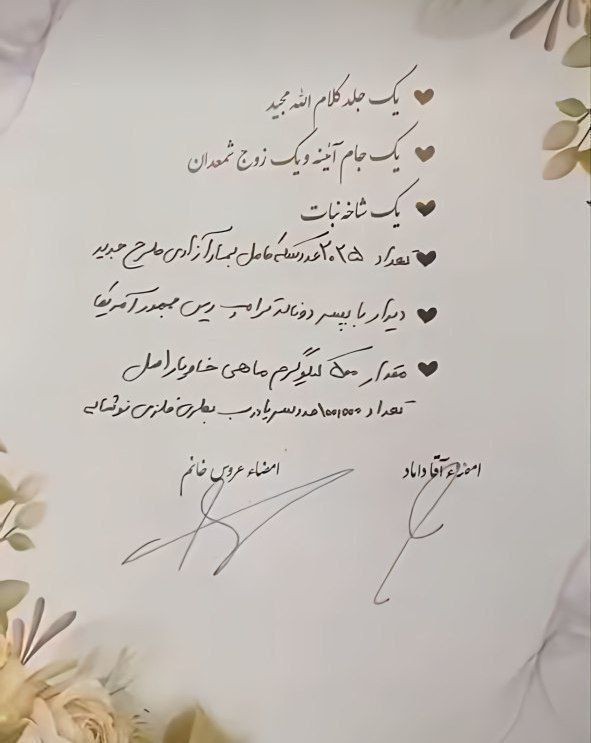 یک جلد کلام الله مجید
یک جام آئینه و یک زوج شمعدان
یک شاخه نبات
تعداد ۲۰۲۵ عدد سکه کامل بهار آزادی طرح جدید
دیدار با پسر دونالد ترامپ رئیس جمهور آمریکا
مقدار ۵۰۰ کیلوگرم ماهی خاویار اصل
تعداد ۱۰۰،۰۰۰ عدد سر یا درب بطری فلزی نوشابه
امضاء آقا داماد
امضاء عروس خانم